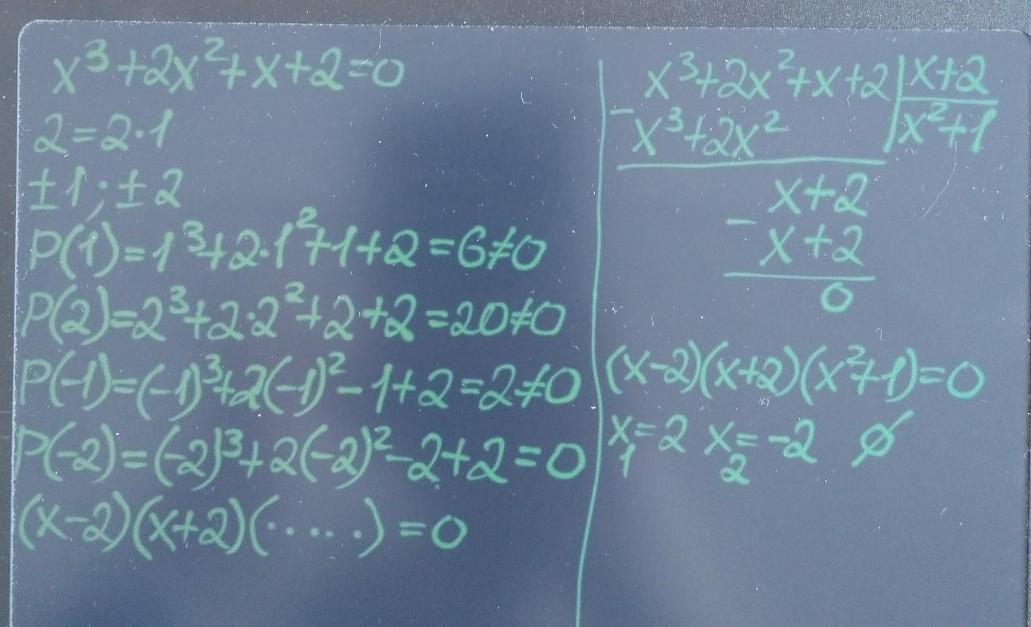 x³+2x²+x+2=0
2=2·1
±1;±2
P(1)=1³+2·1²+1+2=6≠0
P(2)=2³+2·2²+2+2=20≠0
P(-1)=(-1)³+2(-1)²-1+2=2≠0
P(-2)=(-2)³+2(-2)²-2+2=0
(x-2)(x+2)(.....)=0
x³+2x²+x+2|x+2
-x³+2x² |x²+1
x+2
-x+2
0
(x-2)(x+2)(x²+1)=0
x₁=2 x₂=-2 ∅